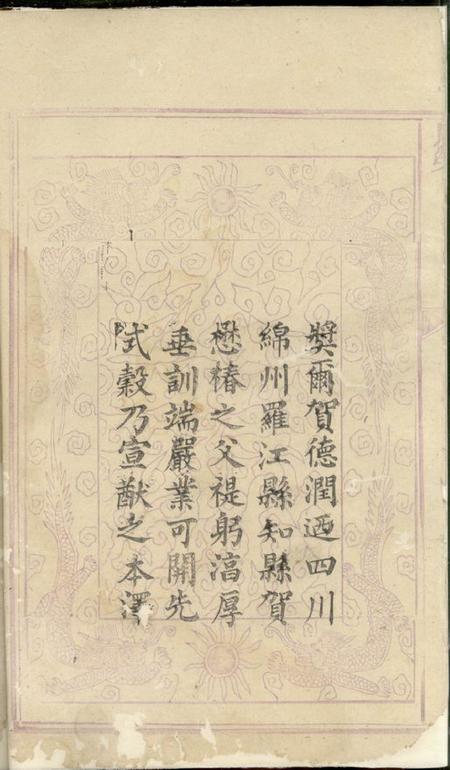 獎爾賀德潤迺四川
綿州羅江縣知縣賀
懋椿之父禔躬滈厚
垂訓端嚴業可開先
式穀乃宣猷之本澤